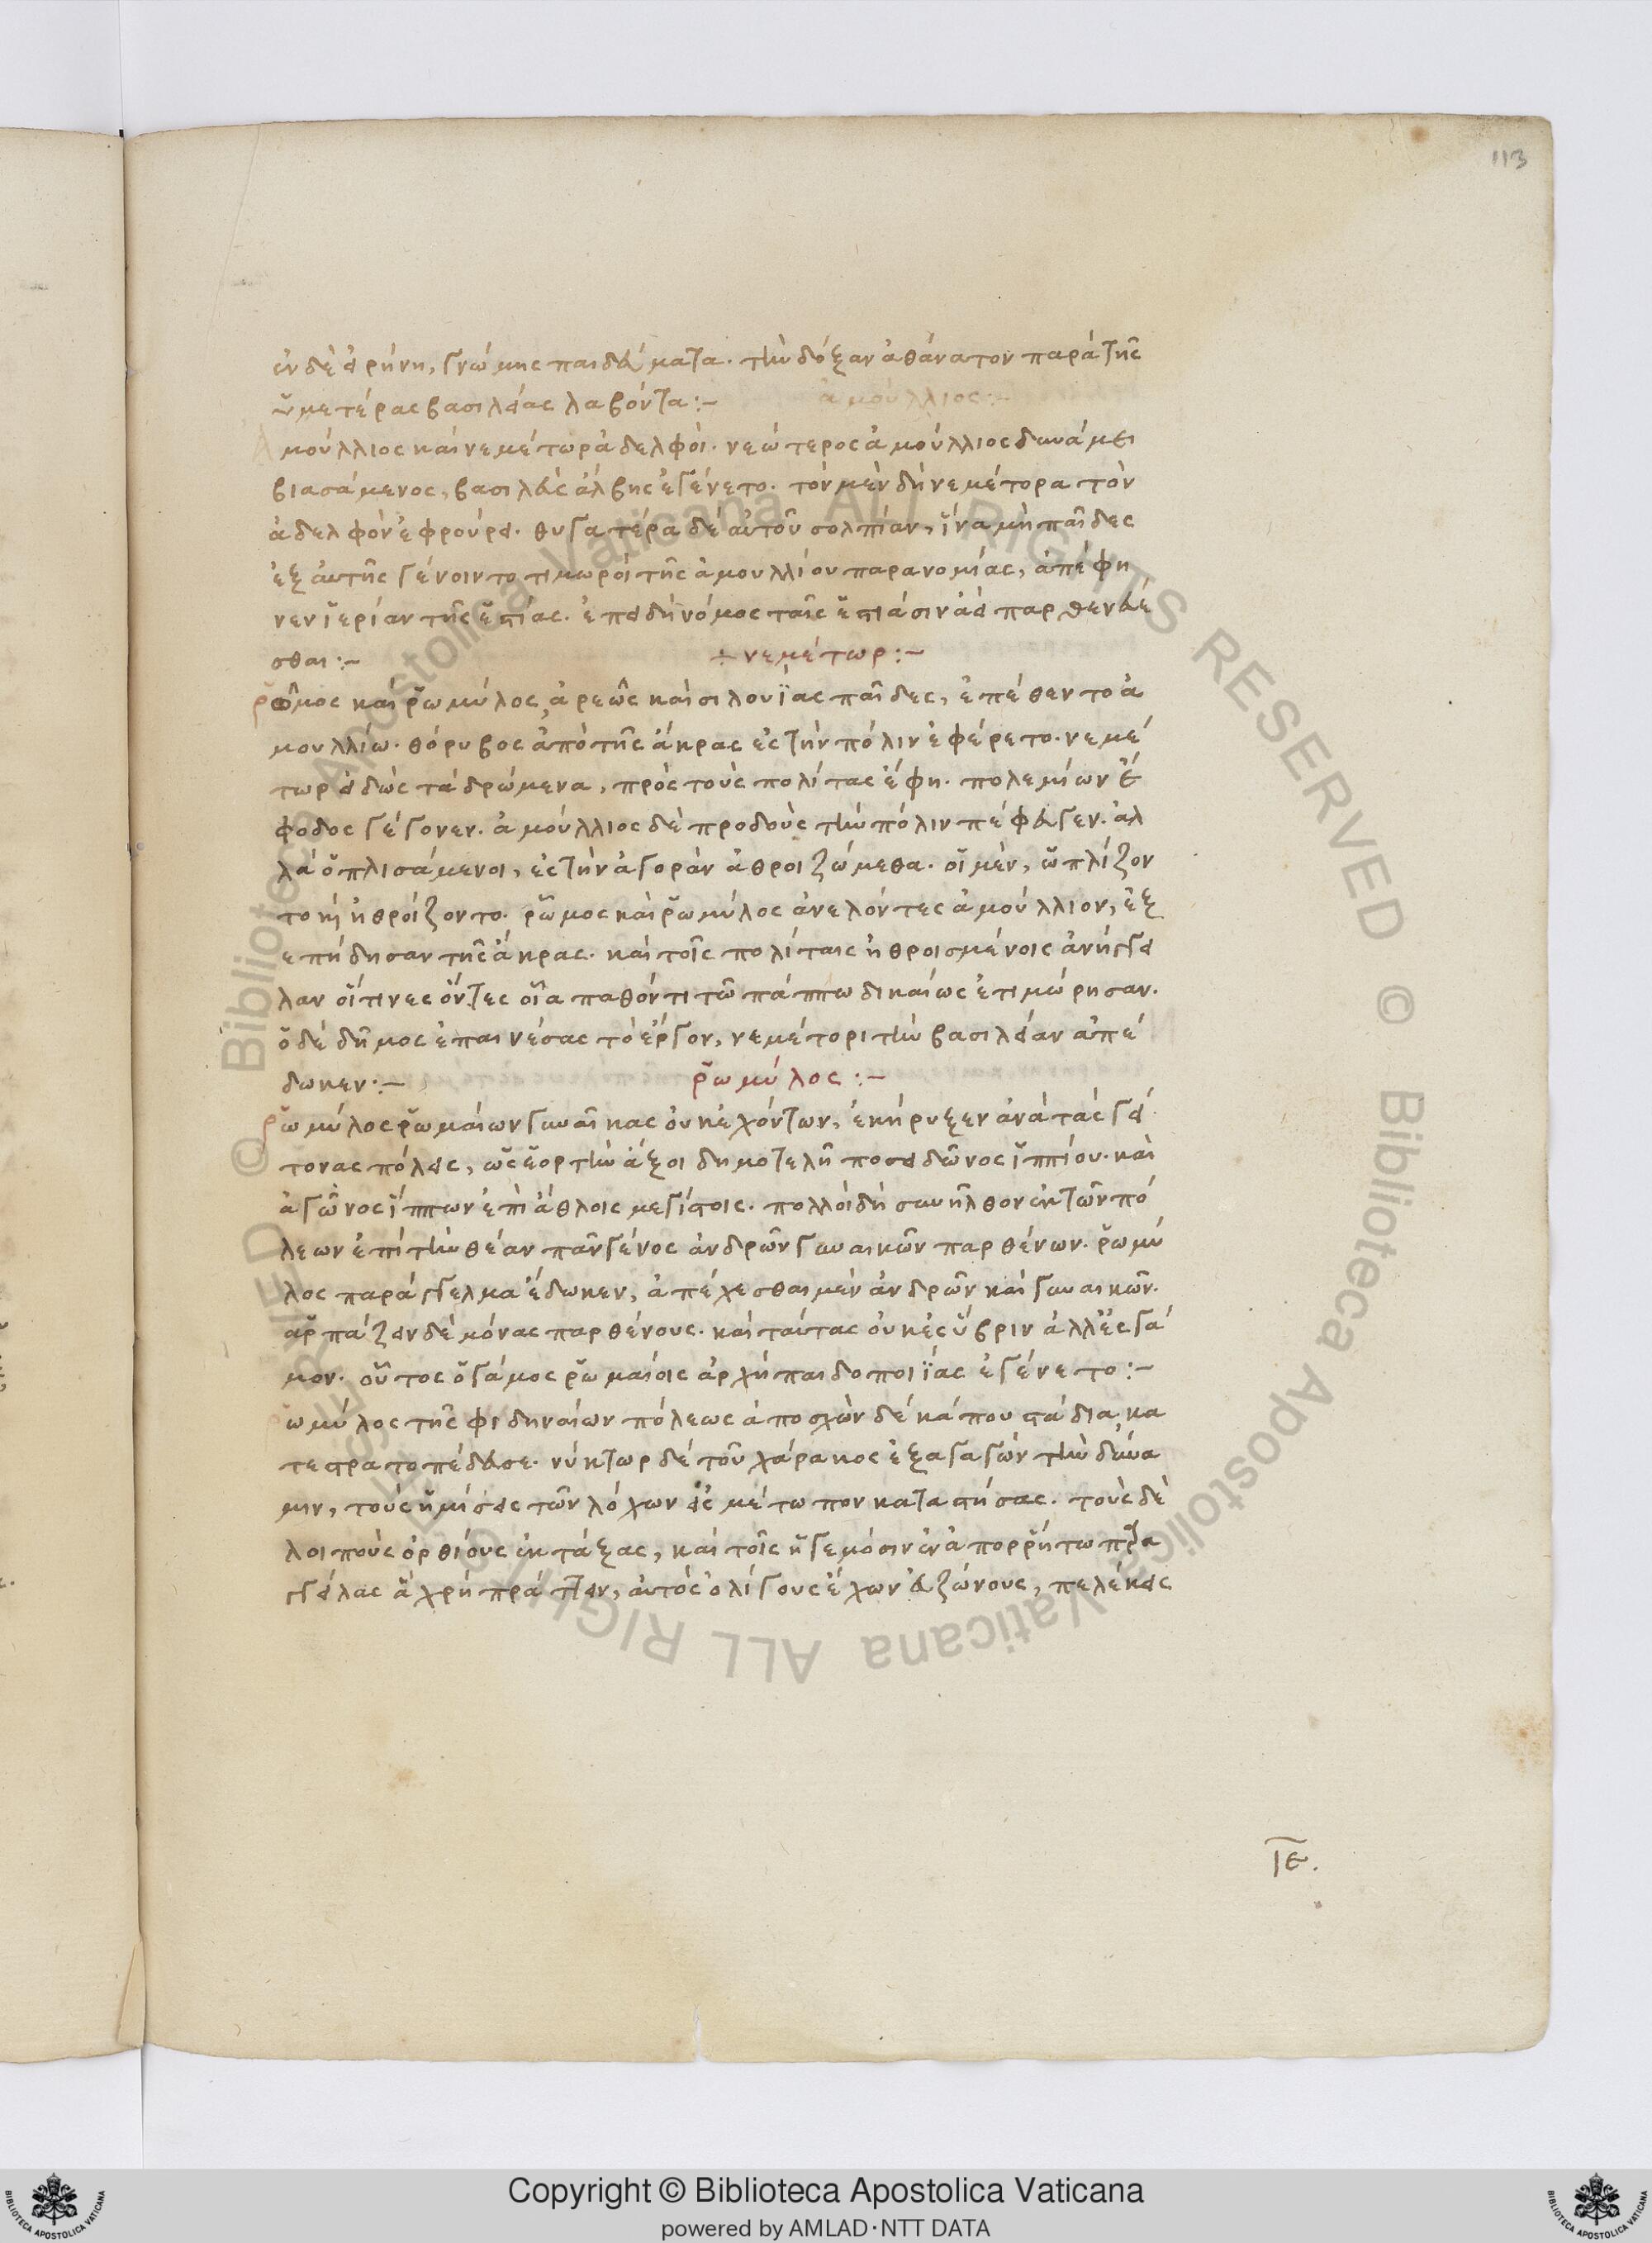 113
ἐν δὲ εἰρήνη, γνώμης παιδεύματα. τὴν δόξαν ἀθάνατον παρὰ τῆς
ὑμετέρας βασιλείας λαβόντα:-
ἀμούλλιος:-
Ἀμούλλιος καὶ νεμέτωρ ἀδελφοί. νεώτερος ἀμούλλιος δυνάμει
βιασάμενος, βασιλεὺς ἄλβης ἐγένετο. τὸν μὲν δὴ νεμέτορα τὸν
ἀδελφὸν ἐφρούρει. θυγατέρα δὲ αὐτοῦ σολπίαν, ἵνα μὴ παῖδες
ἐξ αὐτῆς γένοιντο τιμωροὶ τῆς ἀμουλλίου παρανομίας, ἀπέφη
νεν ἱερίαν τῆς ἑστίας. ἐπειδὴ νόμος ταῖς ἑστιάσιν ἀεὶ παρθενεύε
σθαι:-
+ νεμέτωρ:-
ῥῶμος καὶ ῥωμύλος, ἄρεως καὶ σιλουΐας παῖδες, ἐπέθεντο ἀ
μουλλίω. θόρυβος ἀπὸ τῆς ἄκρας ἐς τὴν πόλιν ἐφέρετο. νεμέ
τωρ εἰδὼς τὰ δρώμενα, πρὸς τοὺς πολίτας ἔφη. πολεμίων ἔ
φοδος γέγονεν. ἀμούλλιος δὲ προδοὺς τὴν πόλιν πέφευγεν. ἀλ
λὰ ὁπλισάμενοι, ἐς τὴν ἀγορὰν ἀθροιζώμεθα. οἱ μὲν, ὡπλίζον
το καὶ ἠθροίζοντο. ῥῶμος καὶ ῥωμύλος ἀνελόντες ἀμούλλιον, ἐξ
επήδησαν τῆς ἄκρας. καὶ τοῖς πολίταις ἠθροισμένοις ἀνήγγει
λαν οἵτινες ὄντες οἷα παθόντι τῶ πάππω δικαίως ἐτιμώρησαν.
ὁ δὲ δῆμος ἐπαινέσας τὸ ἔργον, νεμέτορι τὴν βασιλείαν ἀπέ
δωκεν:-
ῥωμύλος:-
ῥωμύλος ῥωμαίων γυναῖκας οὐκ ἐχόντων, ἐκήρυξεν ἀνὰ τὰς γεί
τονας πόλεις, ὡς ἑορτὴν ἄξοι δημοτελῆ ποσειδῶνος ἱππίου. καὶ
ἀγῶνος ἵππων ἐπὶ ἄθλοις μεγίστοις. πολλοὶ δὴ συνῆλθον ἐκ τῶν πό
λεων ἐπὶ τὴν θέαν πᾶν γένος ἀνδρῶν γυναικῶν παρθένων. ῥωμύ
λος παράγγελμα ἔδωκεν, ἀπέχεσθαι μὲν ἀνδρῶν καὶ γυναικῶν.
ἁρπάζειν δὲ μόνας παρθένους. καὶ ταύτας οὐκ ἐς ὕβριν ἀλλ' ἐς γά
μον. οὗτος ὁ γάμος ῥωμαίοις ἀρχὴ παιδοποιΐας ἐγένετο:-
ωμύλος τῆς φιδηναίων πόλεως ἀποσχὼν δέκα που στάδια, κα
τεστρατοπέδευσε. νύκτωρ δὲ τοῦ χάρακος ἐξαγαγὼν τὴν δύνα
μιν, τοὺς ἡμίσεις τῶν λόχων εἰς μέτωπον καταστήσας. τοὺς δὲ
λοιποὺς ὀρθίους ἐκτάξας, καὶ τοῖς ἡγεμόσιν ἐν ἀπορρήτω πρα
γγείλας ἃ χρὴ πράττειν, αὐτὸς ὀλίγους ἔχων εὐζώνους, πελέκεις
ιε.
Copyright © Biblioteca Apostolica Vaticana
powered by AMLAD·NTT DATA